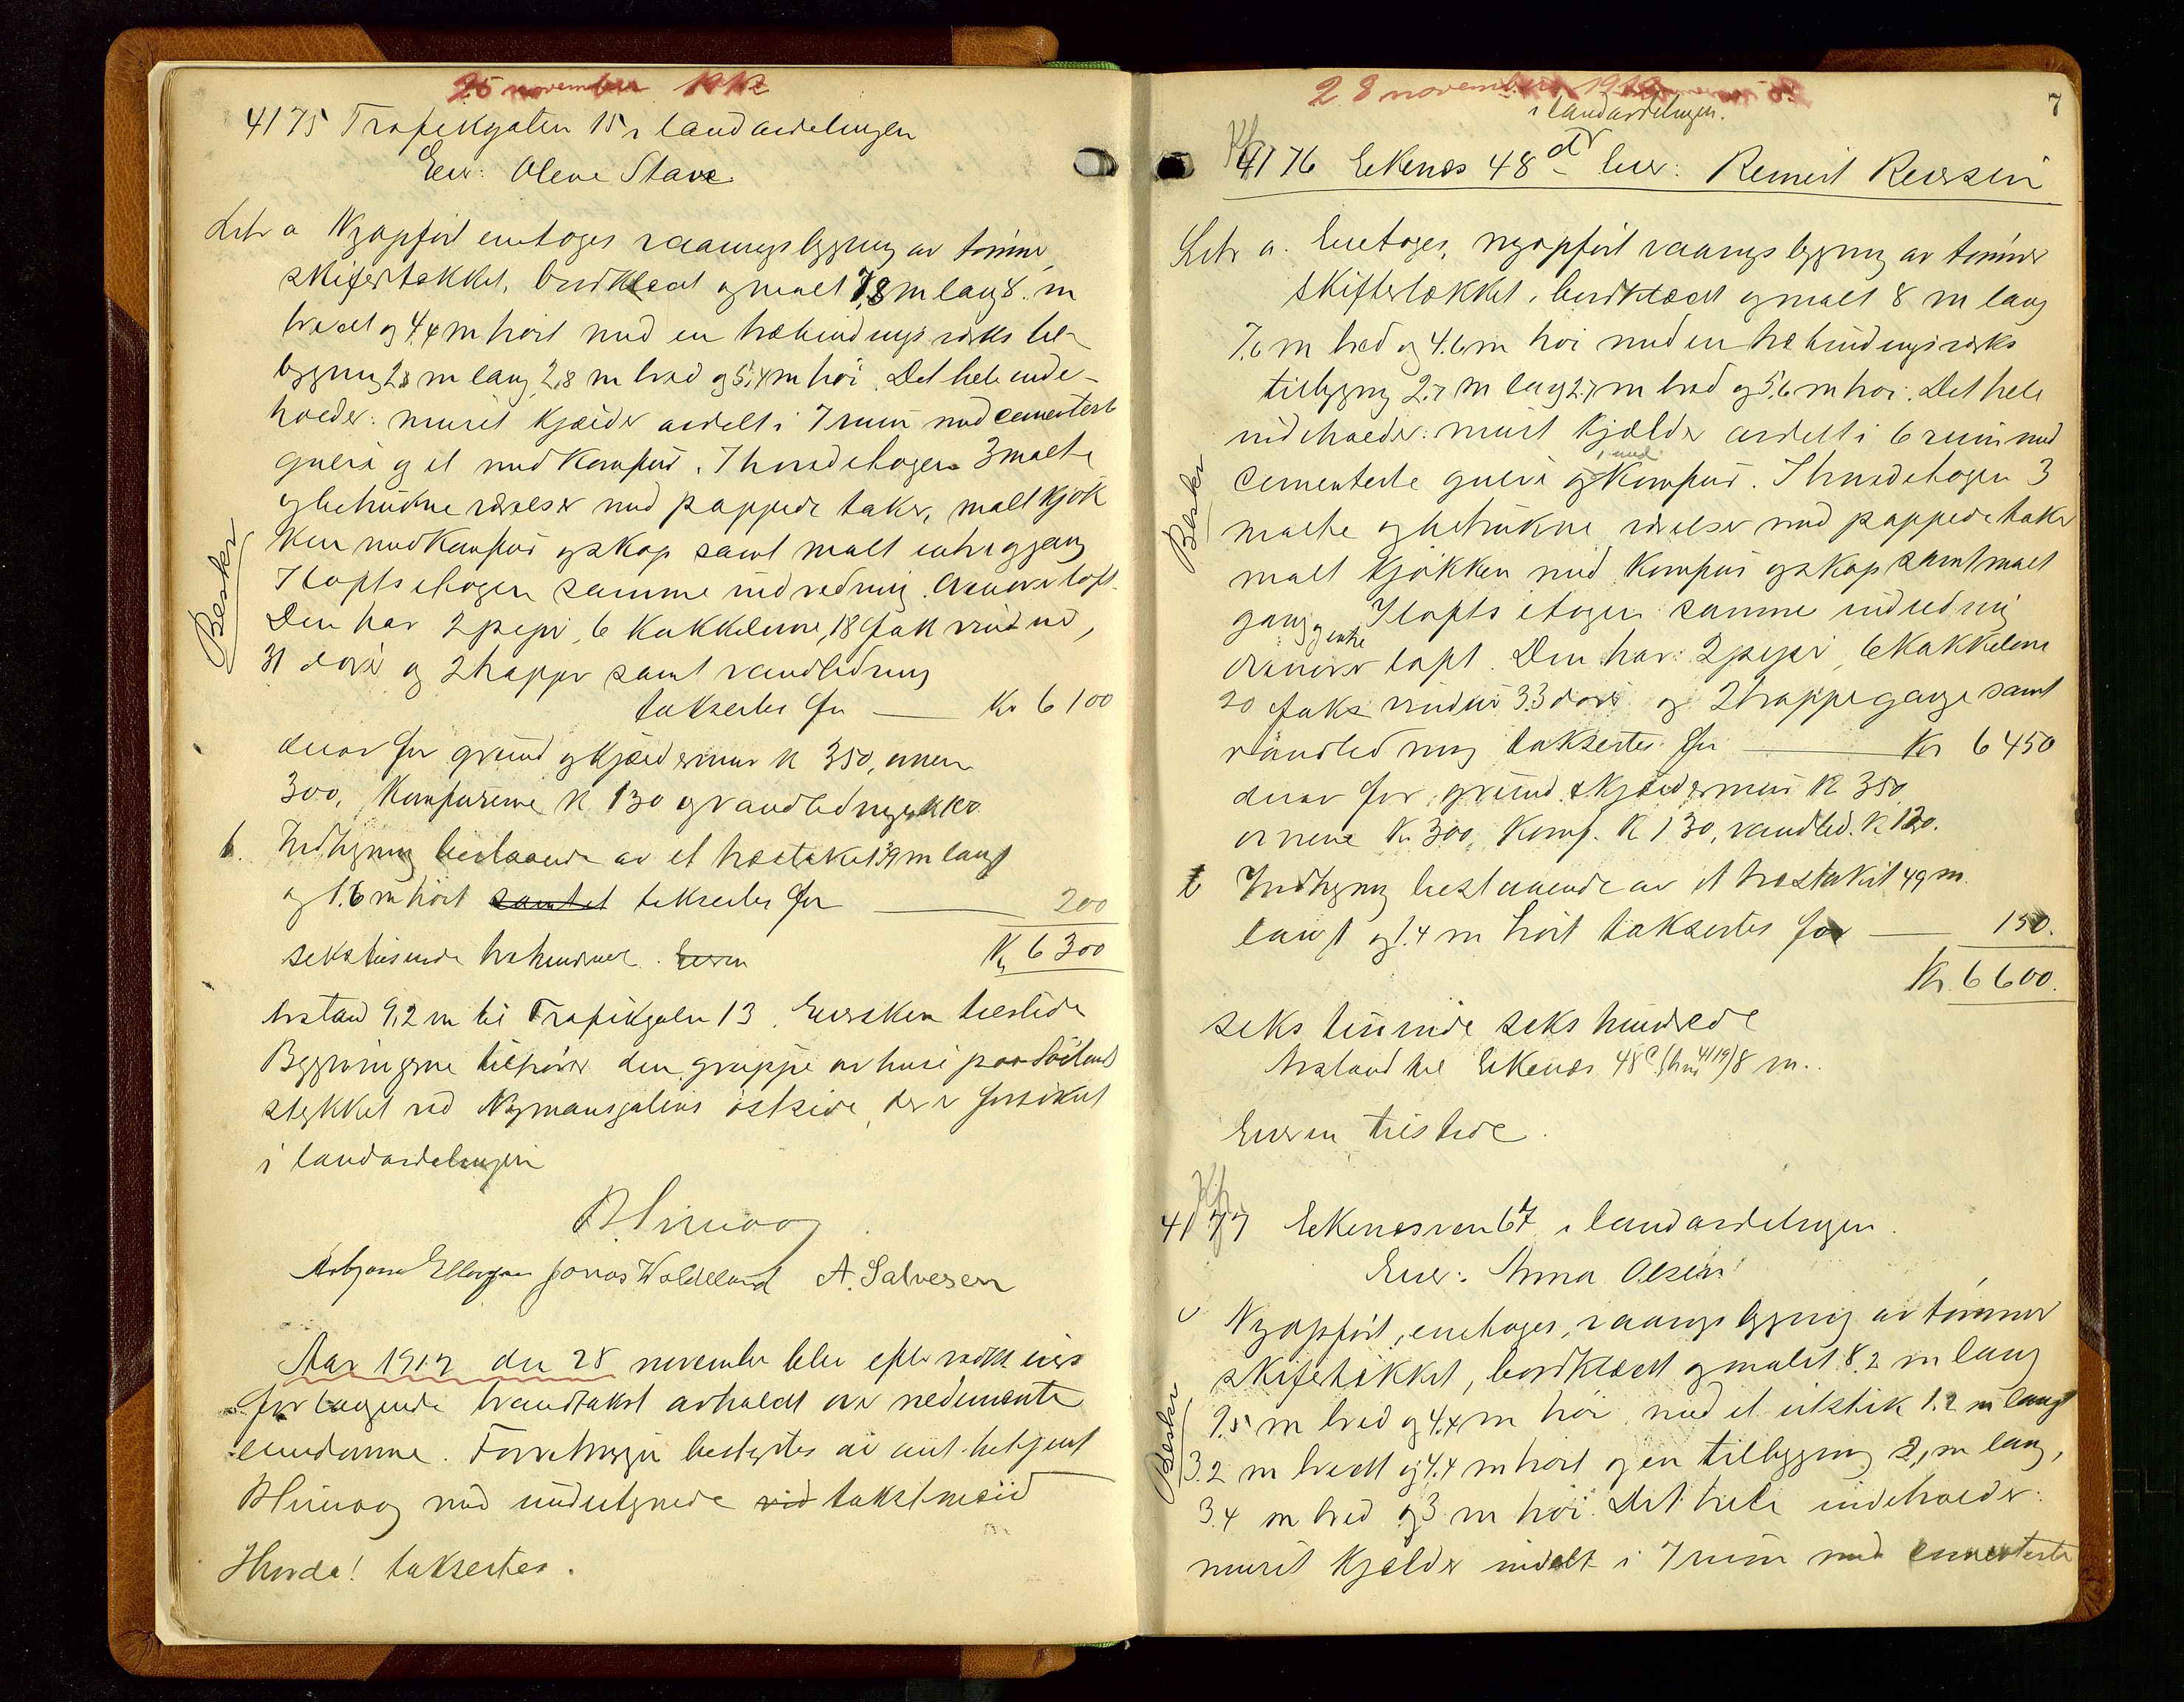 25 november 1912
4175 Trafikgaten 15 i landavdelingen
Eier: Olene Stave
Litr a Nyopført enetages vaaningsbygning av tømmer,
skifertækket, bordklædt og malt 7,8 m lang 8. m
bredt og 4,4 m høit med en træbindingsverks til-
bygning 2,8 m lang 2,8 m bred og 5,4 m høi. Det hele inde-
holder: muret kjælder avdelt i 7 rum med cementert
gulv og et med komfur. I hovedetagen 3 malte
og betrukne værelser med pappede taker, malt kjøk
ken med komfur og skap samt malt entregang
I loftsetagen samme indredning. Ovenover loft.
Den har 2 piper, 6 kakkelovne, 18 fak vinduer,
31 dører og 2 trapper samt vandledning
takseres for — Kr 6 100
Beskr
derav for grund og kjældermur K 350, ovnen
300, Komfurene K 130 og vandledningen K 120
b. Indhegning bestaaende av et træstaket 39 m langt
og 1.6 m høit samt et takseres for — 200
Kr 6 300
sekstusinde trehundrede. Eieren
Avstand 9,2 m til Trafikgaten 13. Eiersken tilstede
Bygningerne tilhører den gruppe av huse paa
stykket ved Nymansgatens østside, der er forsikret
i landavdelingen
Asbjørn Ellingsen Jonas Woldeland A. Salvesen
Aar 1912 den 28 november blev efter vedk. eiers
forlangende brandtakst avholdt over nedennævnte
eiendomme. Forretningen bestyrtes av aut. betjent
med undertegnede vid takstmænd
Hvorda! takseres.
28 november 1912
7
i landavdelingen.
4176 Ekenæs 48 d Eier: Reinert Reiersen
Litr a. Enetages, nyopført vaaningsbygning av tømmer
skiftertækket, bordklædt og malt 8 m lang
7.6 m bred og 4.6 m høi med en træbindingsverks
tilbygning 2.7 m lang 2.7 m bred og 5.6 m høi. Det hele
indeholder: muret kjælder avdelt i 6 rum med
cementerte gulv og med komfur. I hovedetagen 3
malte og betrukne værelser med pappede taker
malt kjøkken med komfur og skap samt malt
gang og entre I loftsetagen samme indredning
ovenover loft. Den har: 2 piper, 6 kakkelovne
20 faks vinduer 33 dører og 2 trappegange samt
vandledning takseres for — Kr 6 450
Beskr
derav for grund & kjældermur K 350
ovnene Kr 300, Komf. K 130, vandled. K 120.
b Indhegning bestaaende av et træstakit 49 m.
langt og 1.4 m høit takseres for — 150.
Kr. 6 600.
seks tusinde seks hundrede
Avstand til Ekenæs 48 c (brnr 4119) 8 m.
Eieren tilstede.
4177 Ekenæsveien 67 i landavdelingen.
Eier: Anna Olsen
Nyopført, enetages, vaaningsbygning av tømmer
skifertækket, bordklædt og malet 8.2 m lang
9.5 m bred og 4.4 m høi, med et utstik 1.2 m langt
3.2 m bredt og 4.4 m høit og en tilbygning 2, m lang,
3.4 m bred og 3 m høi. Det hele indeholder:
muret kjælder inddelt i 7 rum med cementerte
Beskr